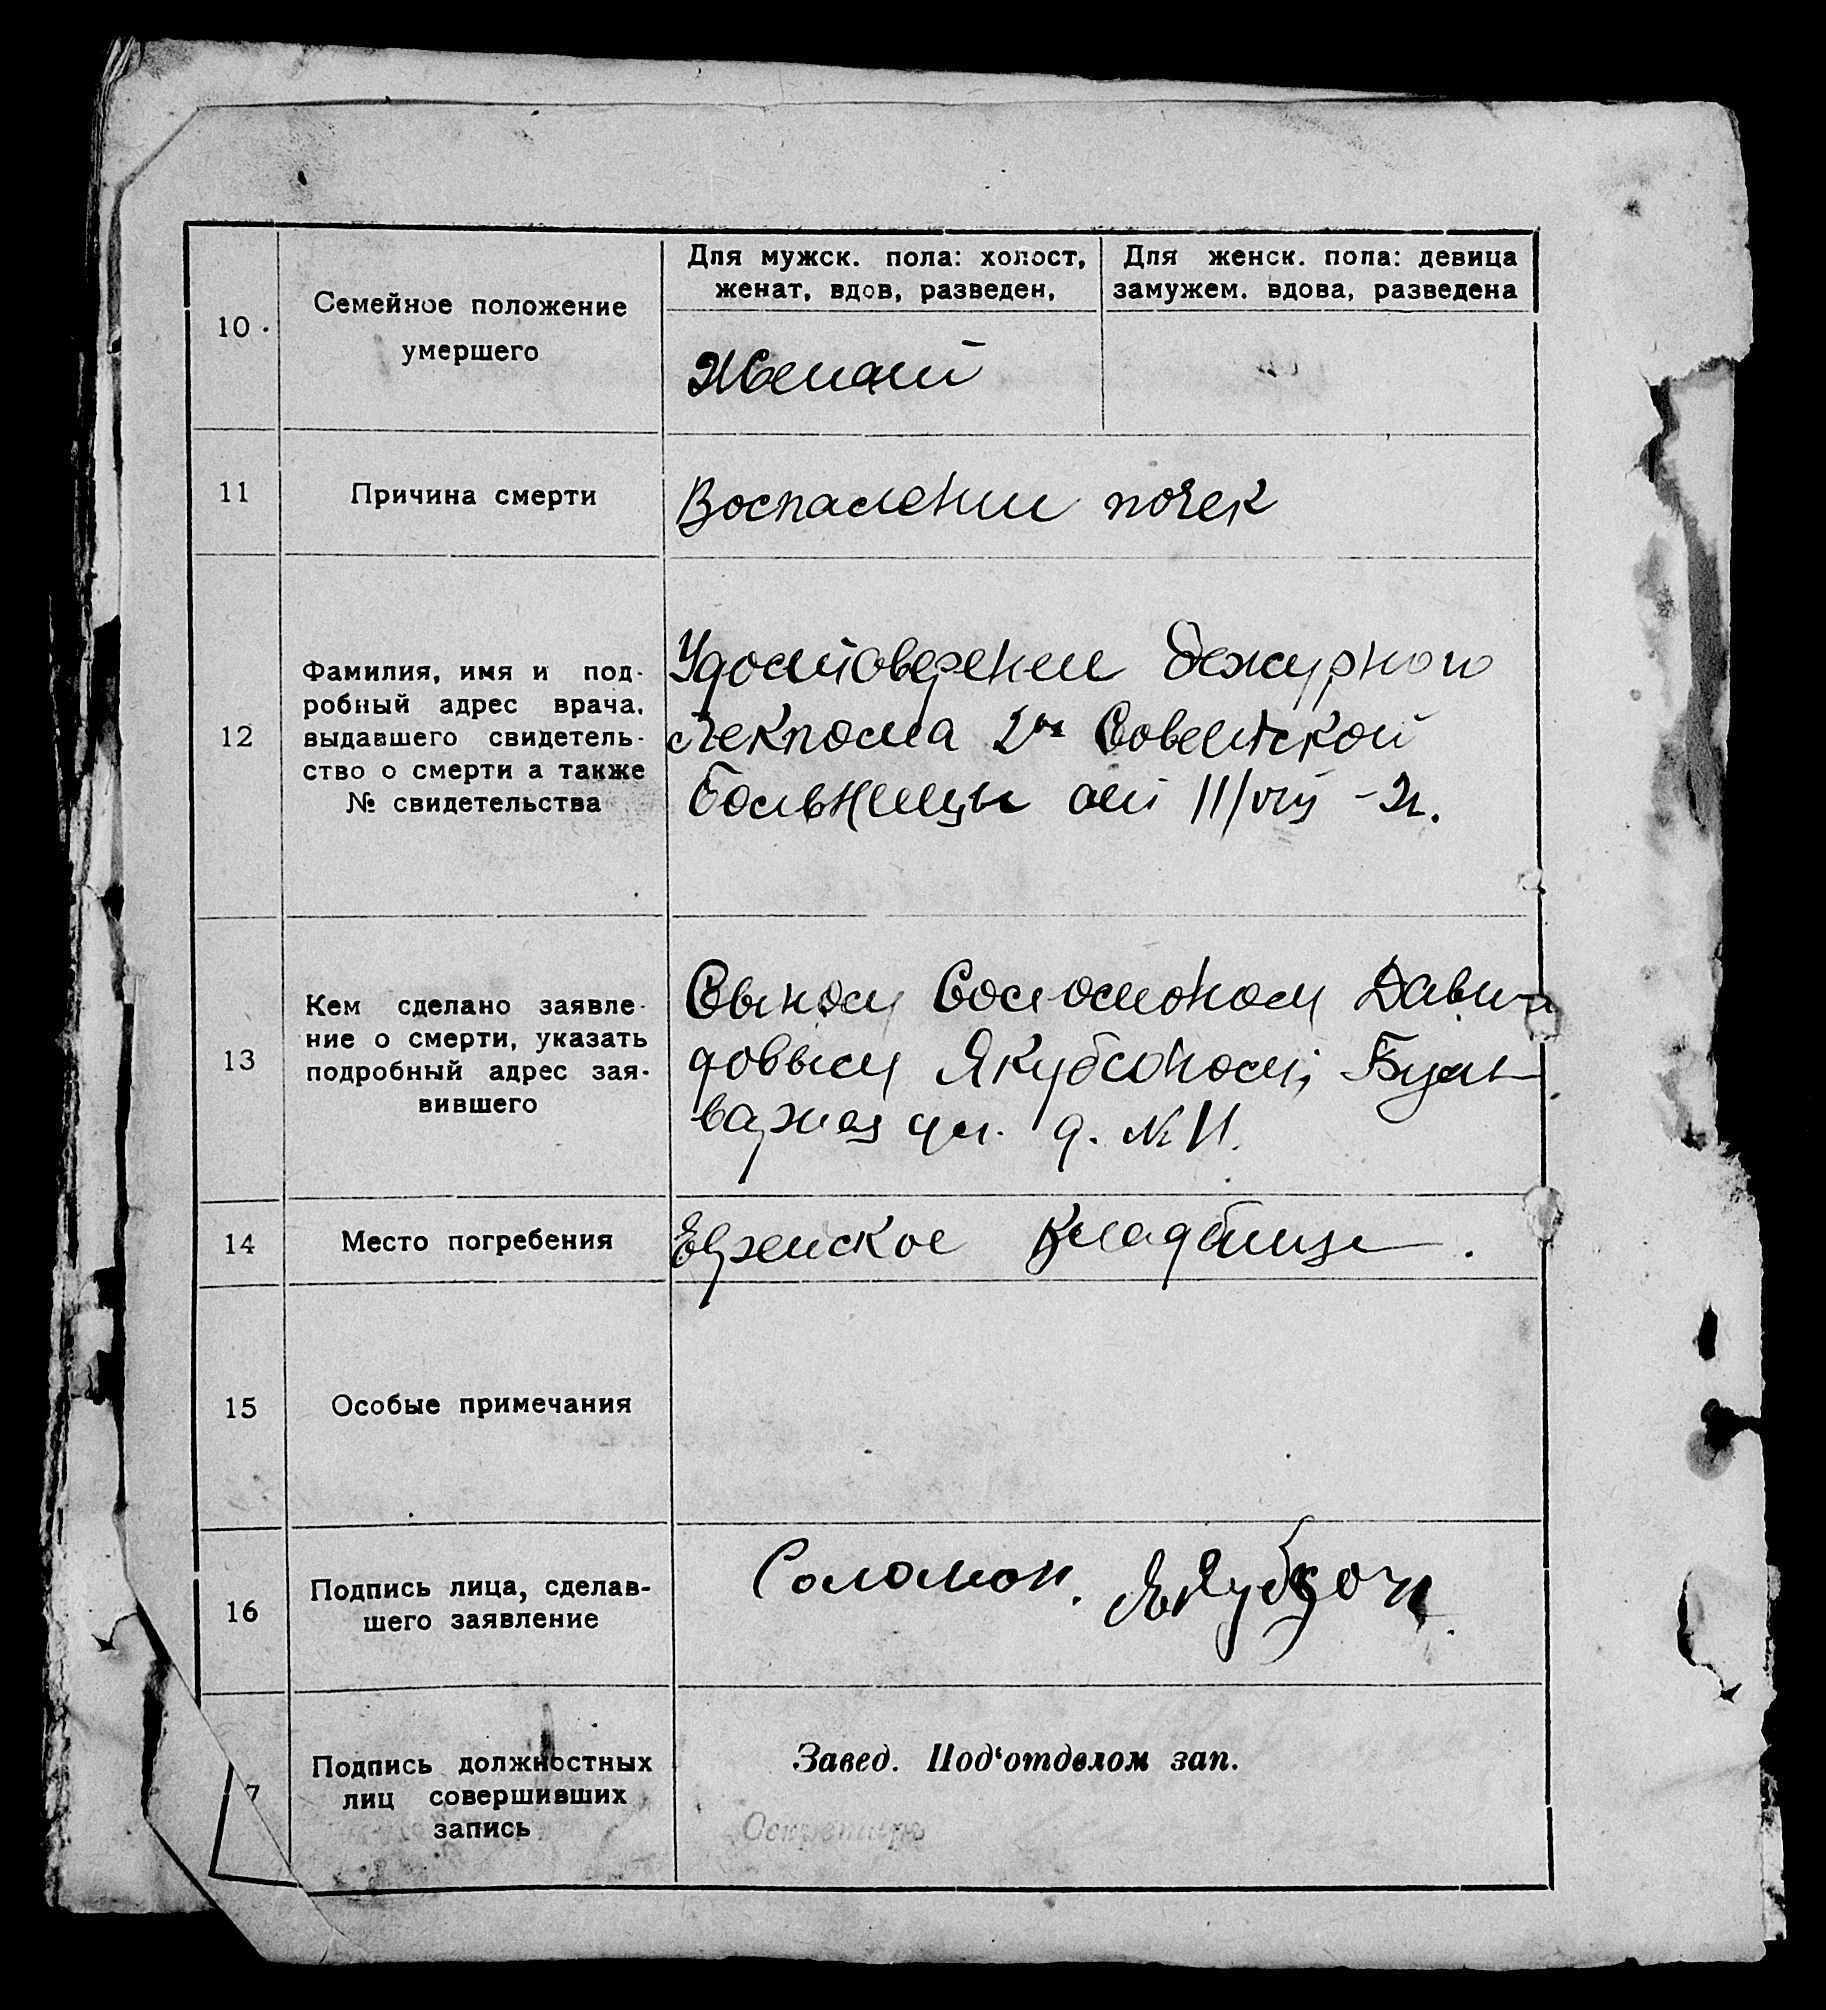 10
Семейное положение
умершего
Для мужск. пола: холост,
женат, вдов, разведен,
Для женск. пола: девица
замужем. вдова, разведена
Женат
11
Причина смерти
Воспаление почек
12
Фамилия, имя и под-
робный адрес врача,
выдавшего свидетель-
ство о смерти а также
№ свидетельства
Удостоверение дежурного
лекпома 2й Советской
больницы от 11/VIII -2г.
13
Кем сделано заявле-
ние о смерти, указать
подробный адрес зая-
вившего
Сыном Соломоном Дави-
довым Якубсоном, Буль-
варная ул. д. № 11.
14
Место погребения
Еврейское кладбище.
15
Особые примечания
16
Подпись лица, сделав-
шего заявление
Соломон. Якубсон.
7
Подпись должностных
лиц совершивших
запись
Завед. Под‘отделом зап.